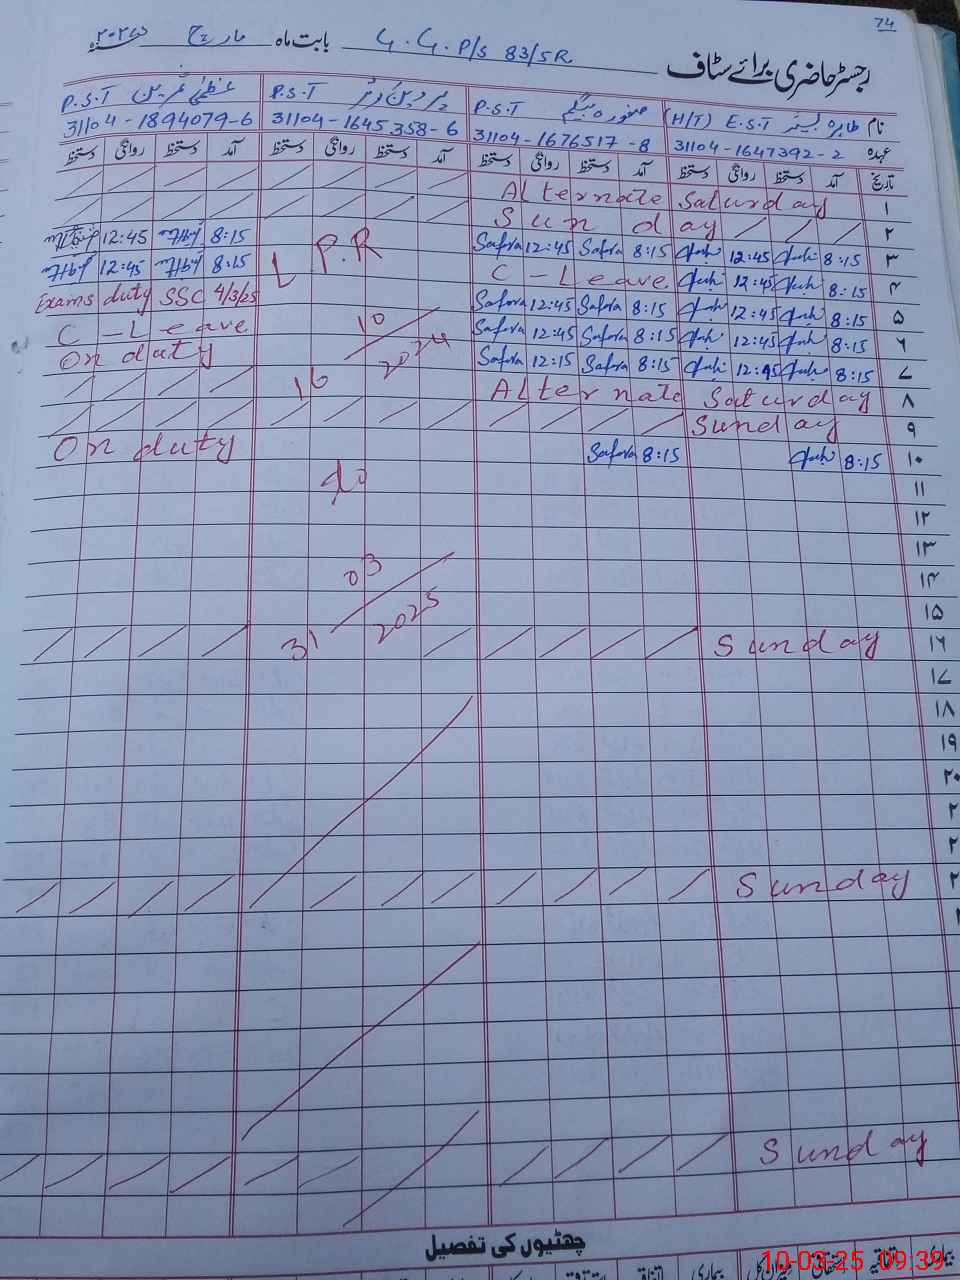 74
رجسٹر حاضری برائے سٹاف G.G.P/S 83/5R بابت ماہ مارچ ۲۰۲۵
نام طاہرہ E.S.T (H/T) صفورہ بیگم P.S.T پروین کوثر P.S.T عظمیٰ P.S.T
عہدہ 31104-1647392-2 31104-1676517-8 31104-1645358-6 31104-1894079-6
تاریخ آمد دستخط روانگی دستخط آمد دستخط روانگی دستخط آمد دستخط روانگی دستخط آمد دستخط روانگی دستخط
۱ Alternate Saturday
۲ Sunday
۳ 8:15 12:45 8:15 Safora 12:45 Safora L.P.R 8:15 12:45
۴ 8:15 12:45 C-Leave 8:15 12:45
۵ 8:15 12:45 8:15 Safora 12:45 Safora Exams duty SSC 4/3/25
۶ 8:15 12:45 8:15 Safora 12:45 Safora 16/10/2024 C-Leave
۷ 8:15 12:45 8:15 Safora 12:15 Safora On duty
۸ Alternate Saturday
۹ Sunday
۱۰ 8:15 8:15 Safora to On duty
۱۱
۱۲
۱۳
۱۴ 31/03/2025
۱۵
۱۶ Sunday
۱۷
۱۸
۱۹
۲۰
۲
۲
۲ Sunday
Sunday
چھٹیوں کی تفصیل
بیماری اتفاقیہ
10-03-25 09:39